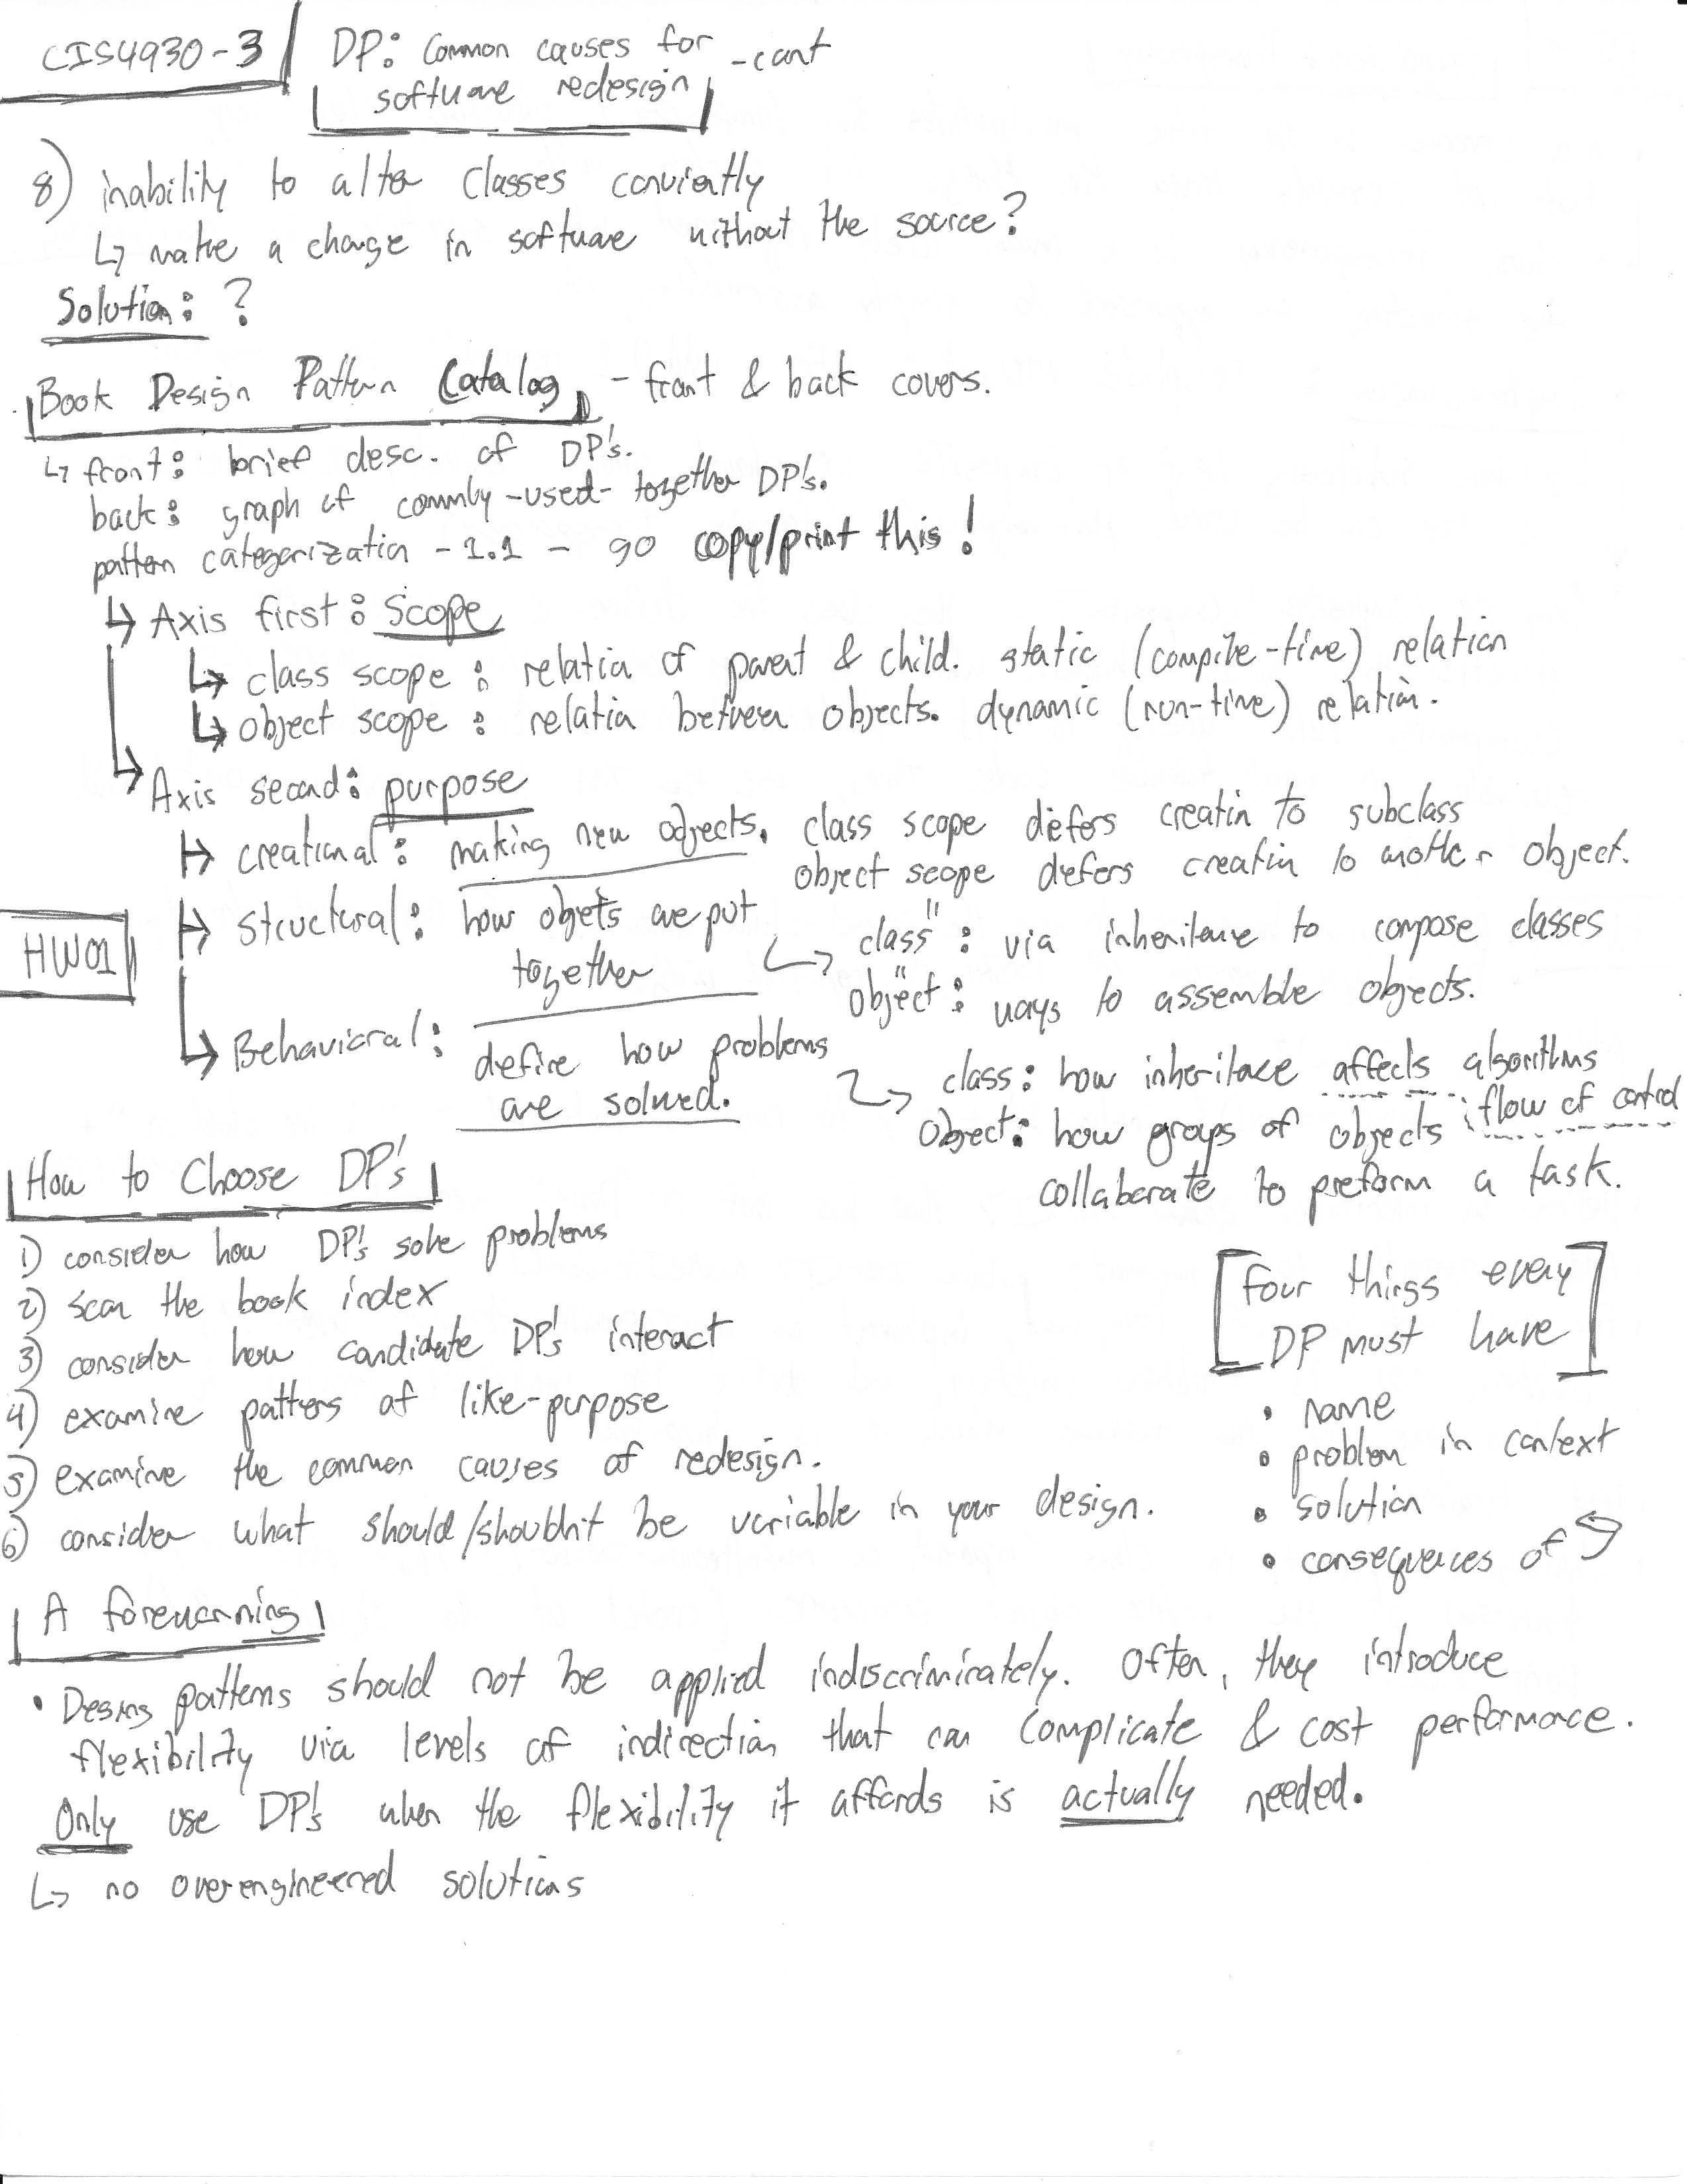 CIS4930-3
DP: Common causes for -cont
software redesign
8) inability to alter classes conviently
↳ make a change in software without the source?
Solution: ?
Book Design Pattern Catalog - front & back covers.
↳ front: brief desc. of DP's.
back: graph of commly-used-together DP's.
pattern categorization - 1.1 - go copy/print this!
↳ Axis first: Scope
↳ class scope: relation of parent & child. static (compile-time) relation
↳ object scope: relation between objects. dynamic (run-time) relation.
↳ Axis second: purpose
creational: making new objects. class scope defers creation to subclass
object scope defers creation to another object.
HW01
structural: how objets are put together
↳ class ": via inheritence to compose classes
object ": ways to assemble objects.
↳ Behavioral: define how problems are solved.
↳ class: how inheritace affects algorithms flow of control
object: how groups of objects
collaborate to preform a task.
How to Choose DP's
1) consider how DP's solve problems
2) scan the book index
3) consider how candidate DP's interact
4) examine patterns of like-purpose
5) examine the common causes of redesign.
6) consider what should/shouldn't be variable in your design.
Four things every
DP must have
• name
• problem in context
• solution
• consequences of
A forewarning
• Desing patterns should not be applied indiscriminately. Often, they introduce
flexibility via levels of indirection that can complicate & cost performance.
Only use DP's when the flexibility it affords is actually needed.
↳ no overengineered solutions